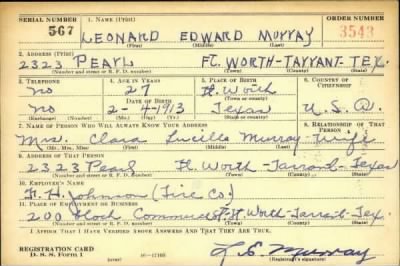 SERIAL NUMBER 567 1. NAME (Print) ORDER NUMBER 3543
LEONARD EDWARD MURRAY
(First) (Middle) (Last)
2. ADDRESS (Print)
2323 PEARL FT. WORTH-TARRANT-TEX.
(Number and street or R. F. D. number) (Town) (County) (State)
3. TELEPHONE 4. AGE IN YEARS 5. PLACE OF BIRTH 6. COUNTRY OF CITIZENSHIP
No 27 Ft. Worth
DATE OF BIRTH (Town or county)
No 2-4-1913 Texas U.S.A.
(Exchange) (Number) (Mo.) (Day) (Yr.) (State or country)
7. NAME OF PERSON WHO WILL ALWAYS KNOW YOUR ADDRESS 8. RELATIONSHIP OF THAT PERSON
Mrs. Clara Lucille Murray-Wife
(Mr., Mrs., Miss) (First) (Middle) (Last)
9. ADDRESS OF THAT PERSON
2323 Pearl Ft. Worth-Tarrant-Texas
(Number and street or R. F. D. number) (Town) (County) (State)
10. EMPLOYER'S NAME
Johnson (Tire Co)
11. PLACE OF EMPLOYMENT OR BUSINESS
200 Block Commerce St-Ft. Worth-Tarrant-Tex.
(Number and street or R. F. D. number) (Town) (County) (State)
I AFFIRM THAT I HAVE VERIFIED ABOVE ANSWERS AND THAT THEY ARE TRUE.
REGISTRATION CARD
D. S. S. Form 1 (over) 16—17105 L.E. Murray